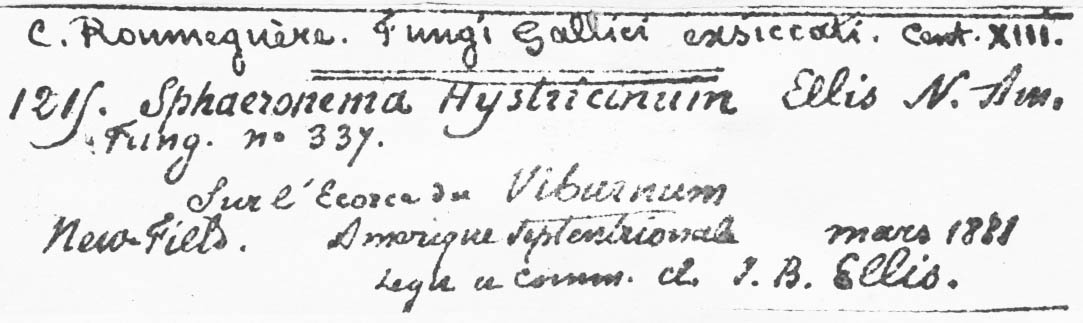 C. Roumeguère. Fungi Gallici exsiccati. Cent. XIII.
1215. Sphaeronema Hystricinum Ellis N. Am.
Fung. no 337.
Sur l'Ecorce du Viburnum
New-Field. Amerique septentrionale mars 1881
Legit et Comm. cl. J. B. Ellis.